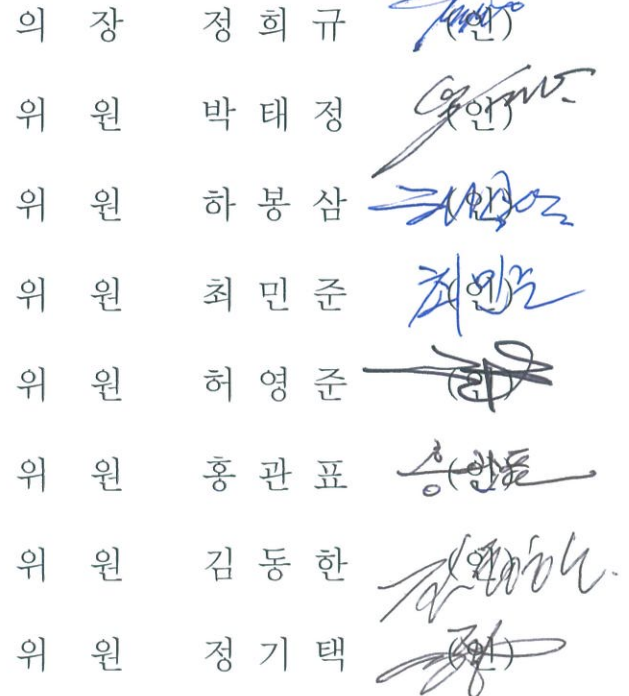 의 장 정 희 규 (인)
위 원 박 태 정 (인)
위 원 하 봉 삼 (인)
위 원 최 민 준 (인)
위 원 허 영 준 (인)
위 원 홍 관 표 (인)
위 원 김 동 한 (인)
위 원 정 기 택 (인)